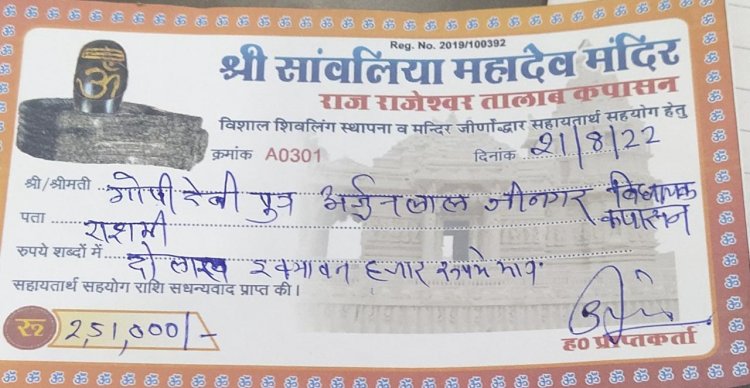 Reg. No. 2019/100392
श्री सांवलिया महादेव मंदिर
राज राजेश्वर तालाब कपासन
विशाल शिवलिंग स्थापना व मन्दिर जीर्णोद्धार सहायतार्थ सहयोग हेतु
क्रमांक A0301 दिनांक 21/8/22
श्री/श्रीमती गोपीदेवी पुत्र अर्जुनलाल जीनगर विधायक
पता राशमी कपासन
रुपये शब्दों में दो लाख इक्यावन हजार रूपये मात्र
सहायतार्थ सहयोग राशि सधन्यवाद प्राप्त की।
रु 2,51,000/-
ह० प्राप्तकर्ता